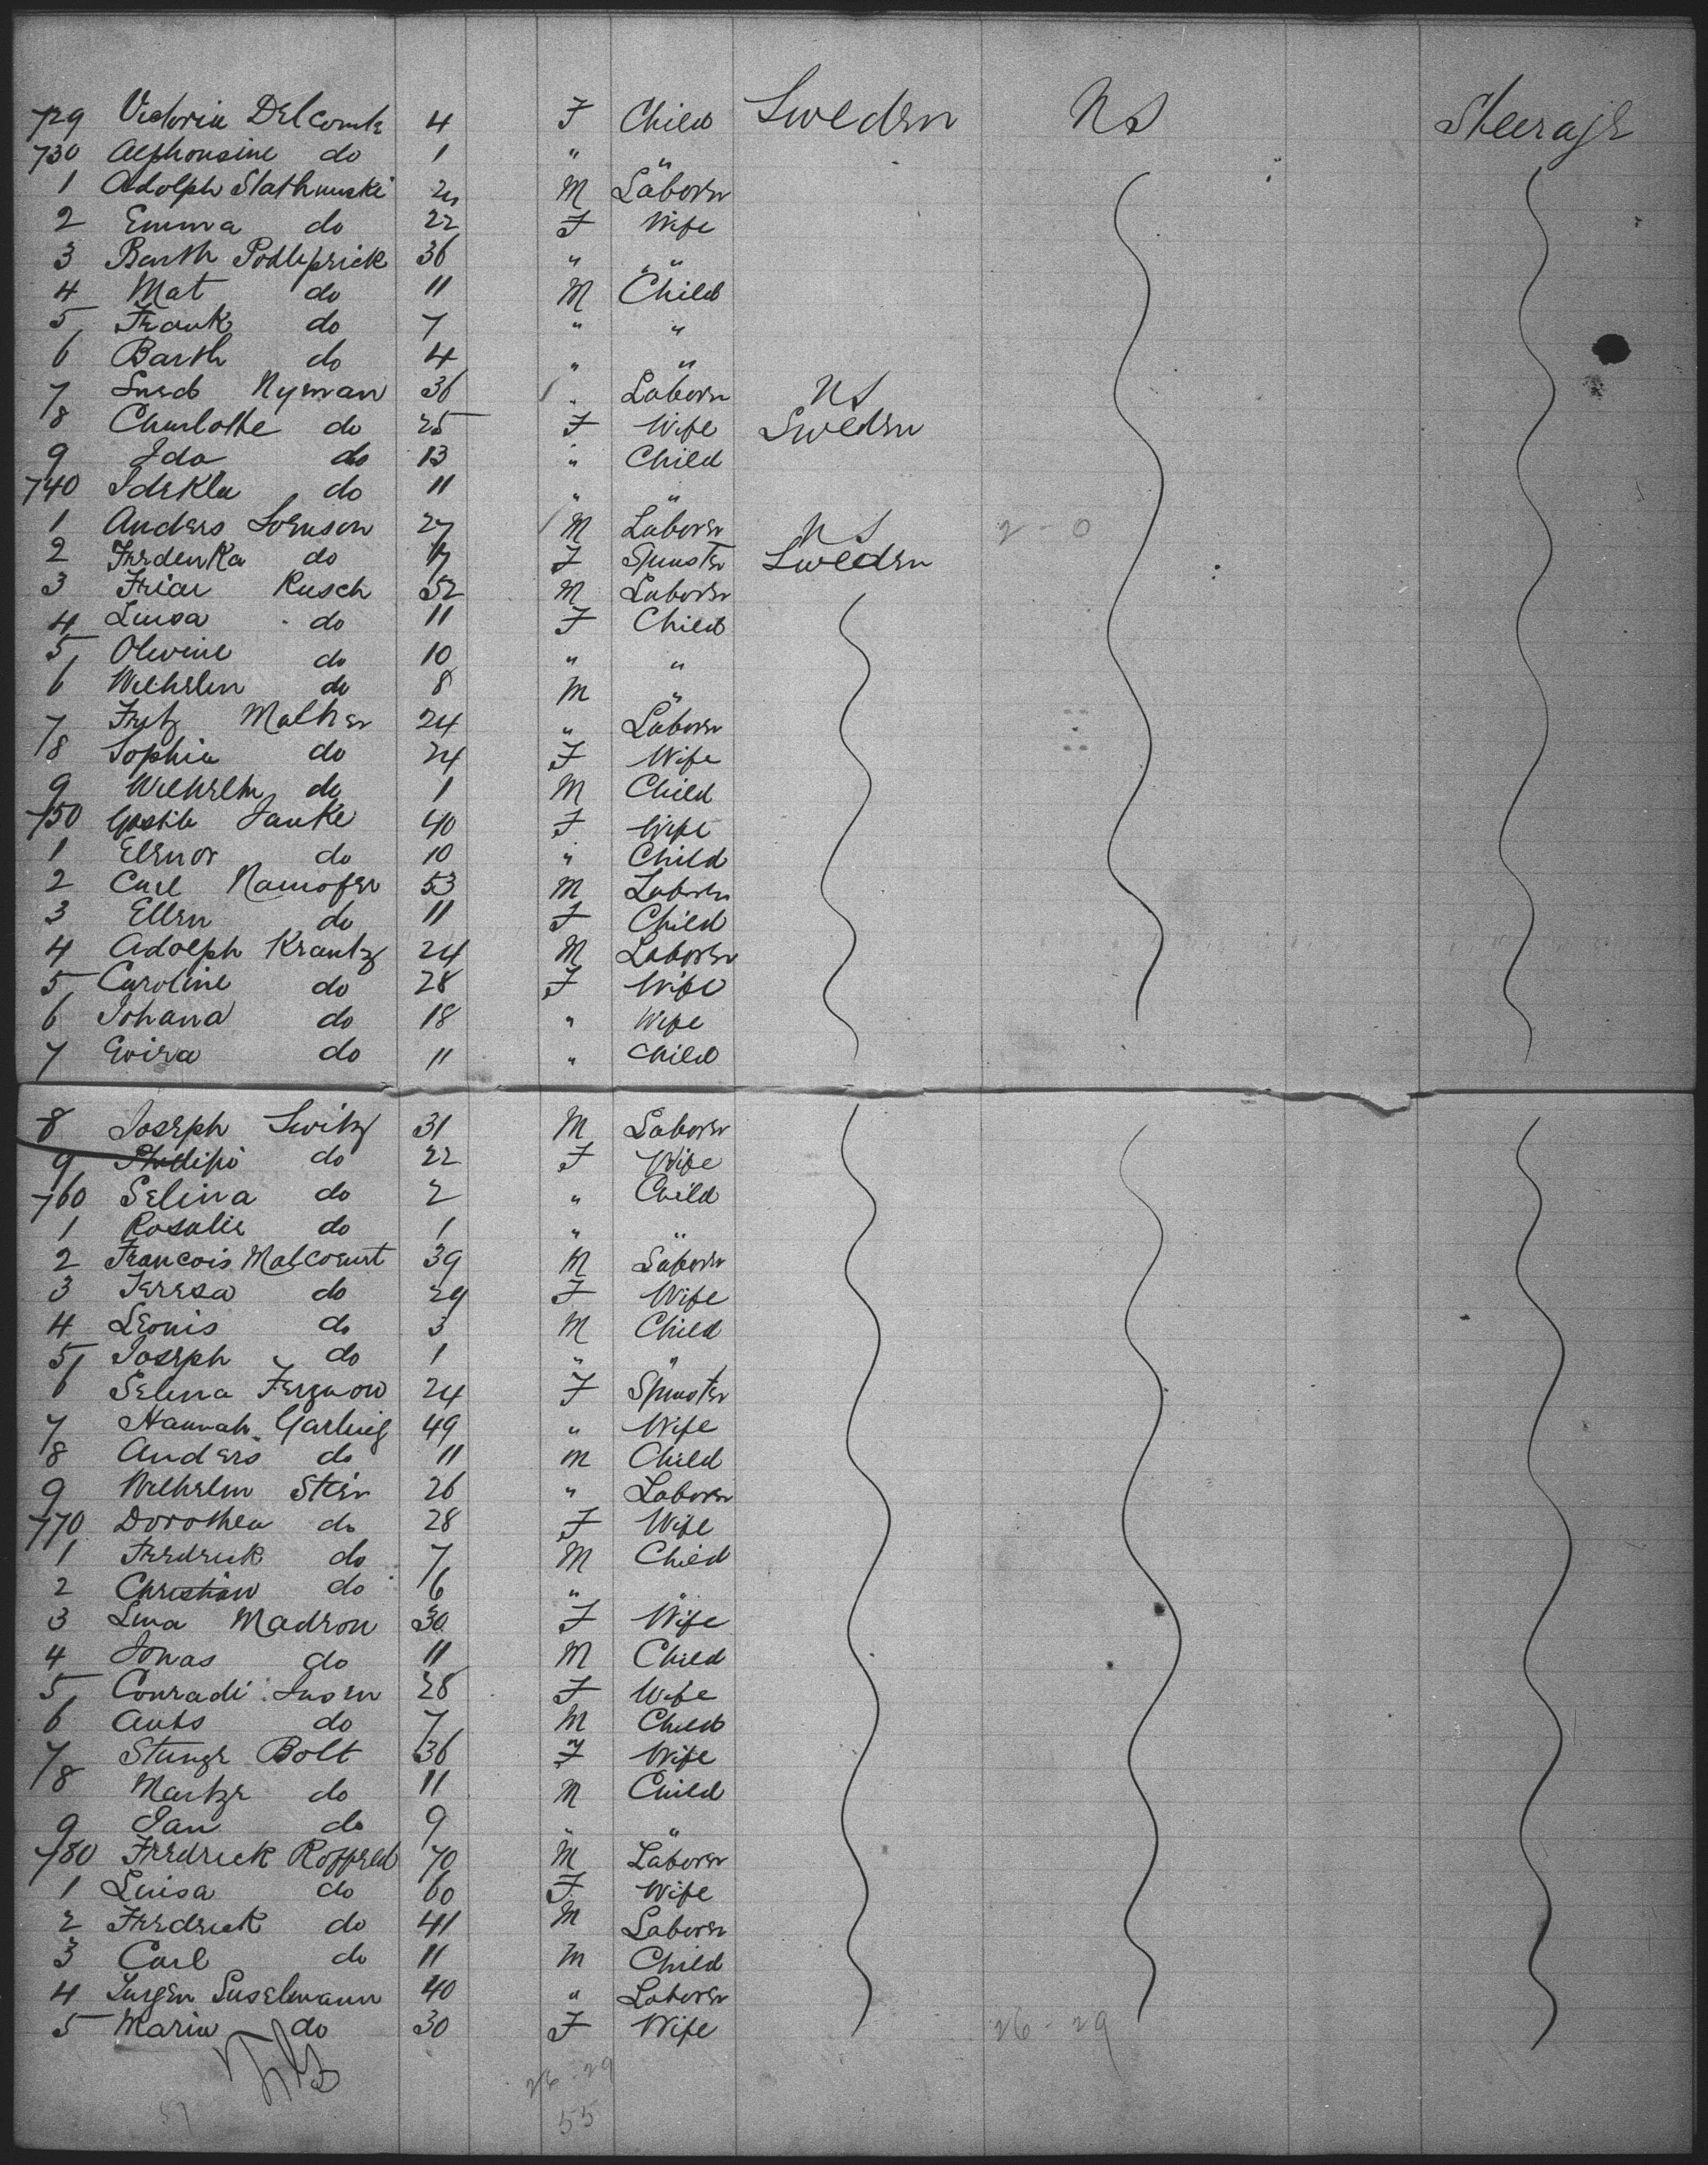 729 Victoria Delcomte 4 F Child Sweden US Steerage
730 Alphonsine do 1 " "
1 Adolph Slathmuski 24 M Laborer
2 Emma do 22 F Wife
3 Barth Podleprick 36 " "
4 Mat do 11 M Child
5 Frank do 7 " "
6 Barth do 4 " "
7 Nyman 36 " Laborer US
8 Charlotte do 25 F Wife Sweden
9 Ida do 13 " Child
740 do 11 " "
1 Anders 27 M Laborer US 2 - 0
2 do 17 F Spinster Sweden
3 Rusch 52 M Laborer
4 Luisa do 11 F Child
5 Olivine do 10 " "
6 Wilhelm do 8 M "
7 Fritz Malher 24 " Laborer
8 Sophia do 24 F Wife
9 Wilhelm do 1 M Child
750 Janke 40 F Wife
1 Elenor do 10 " Child
2 Carl Namofer 53 M Laborer
3 Ellen do 11 F Child
4 Adolph Krantz 24 M Laborer
5 Caroline do 28 F Wife
6 Johana do 18 " Wife
7 do 11 " Child
8 Joseph Switz 31 M Laborer
9 Phillipi do 22 F Wife
760 Selina do 2 " Child
1 Rosalie do 1 " "
2 Francois Malcourt 39 M Laborer
3 Teresa do 29 F Wife
4 Leonis do 3 M Child
5 Joseph do 1 " "
6 Selina 24 F Spinster
7 Hannah 49 " Wife
8 Anders do 11 M Child
9 Wilhelm Stein 26 " Laborer
770 Dorothea do 28 F Wife
1 Fredrick do 7 M Child
2 Christian do 6 " "
3 Lina Madron 30 F Wife
4 Jonas do 11 M Child
5 Conradi 28 F Wife
6 do 7 M Child
7 Bolt 36 F Wife
8 do 11 M Child
9 Jan do 9 " "
780 Fredrick Roffred 70 M Laborer
1 Luisa do 60 F Wife
2 Fredrick do 41 M Laborer
3 Carl do 11 M Child
4 Jurgen Suselmann 40 " Laborer
5 Maria do 30 F Wife 26 - 29
26 - 29
55